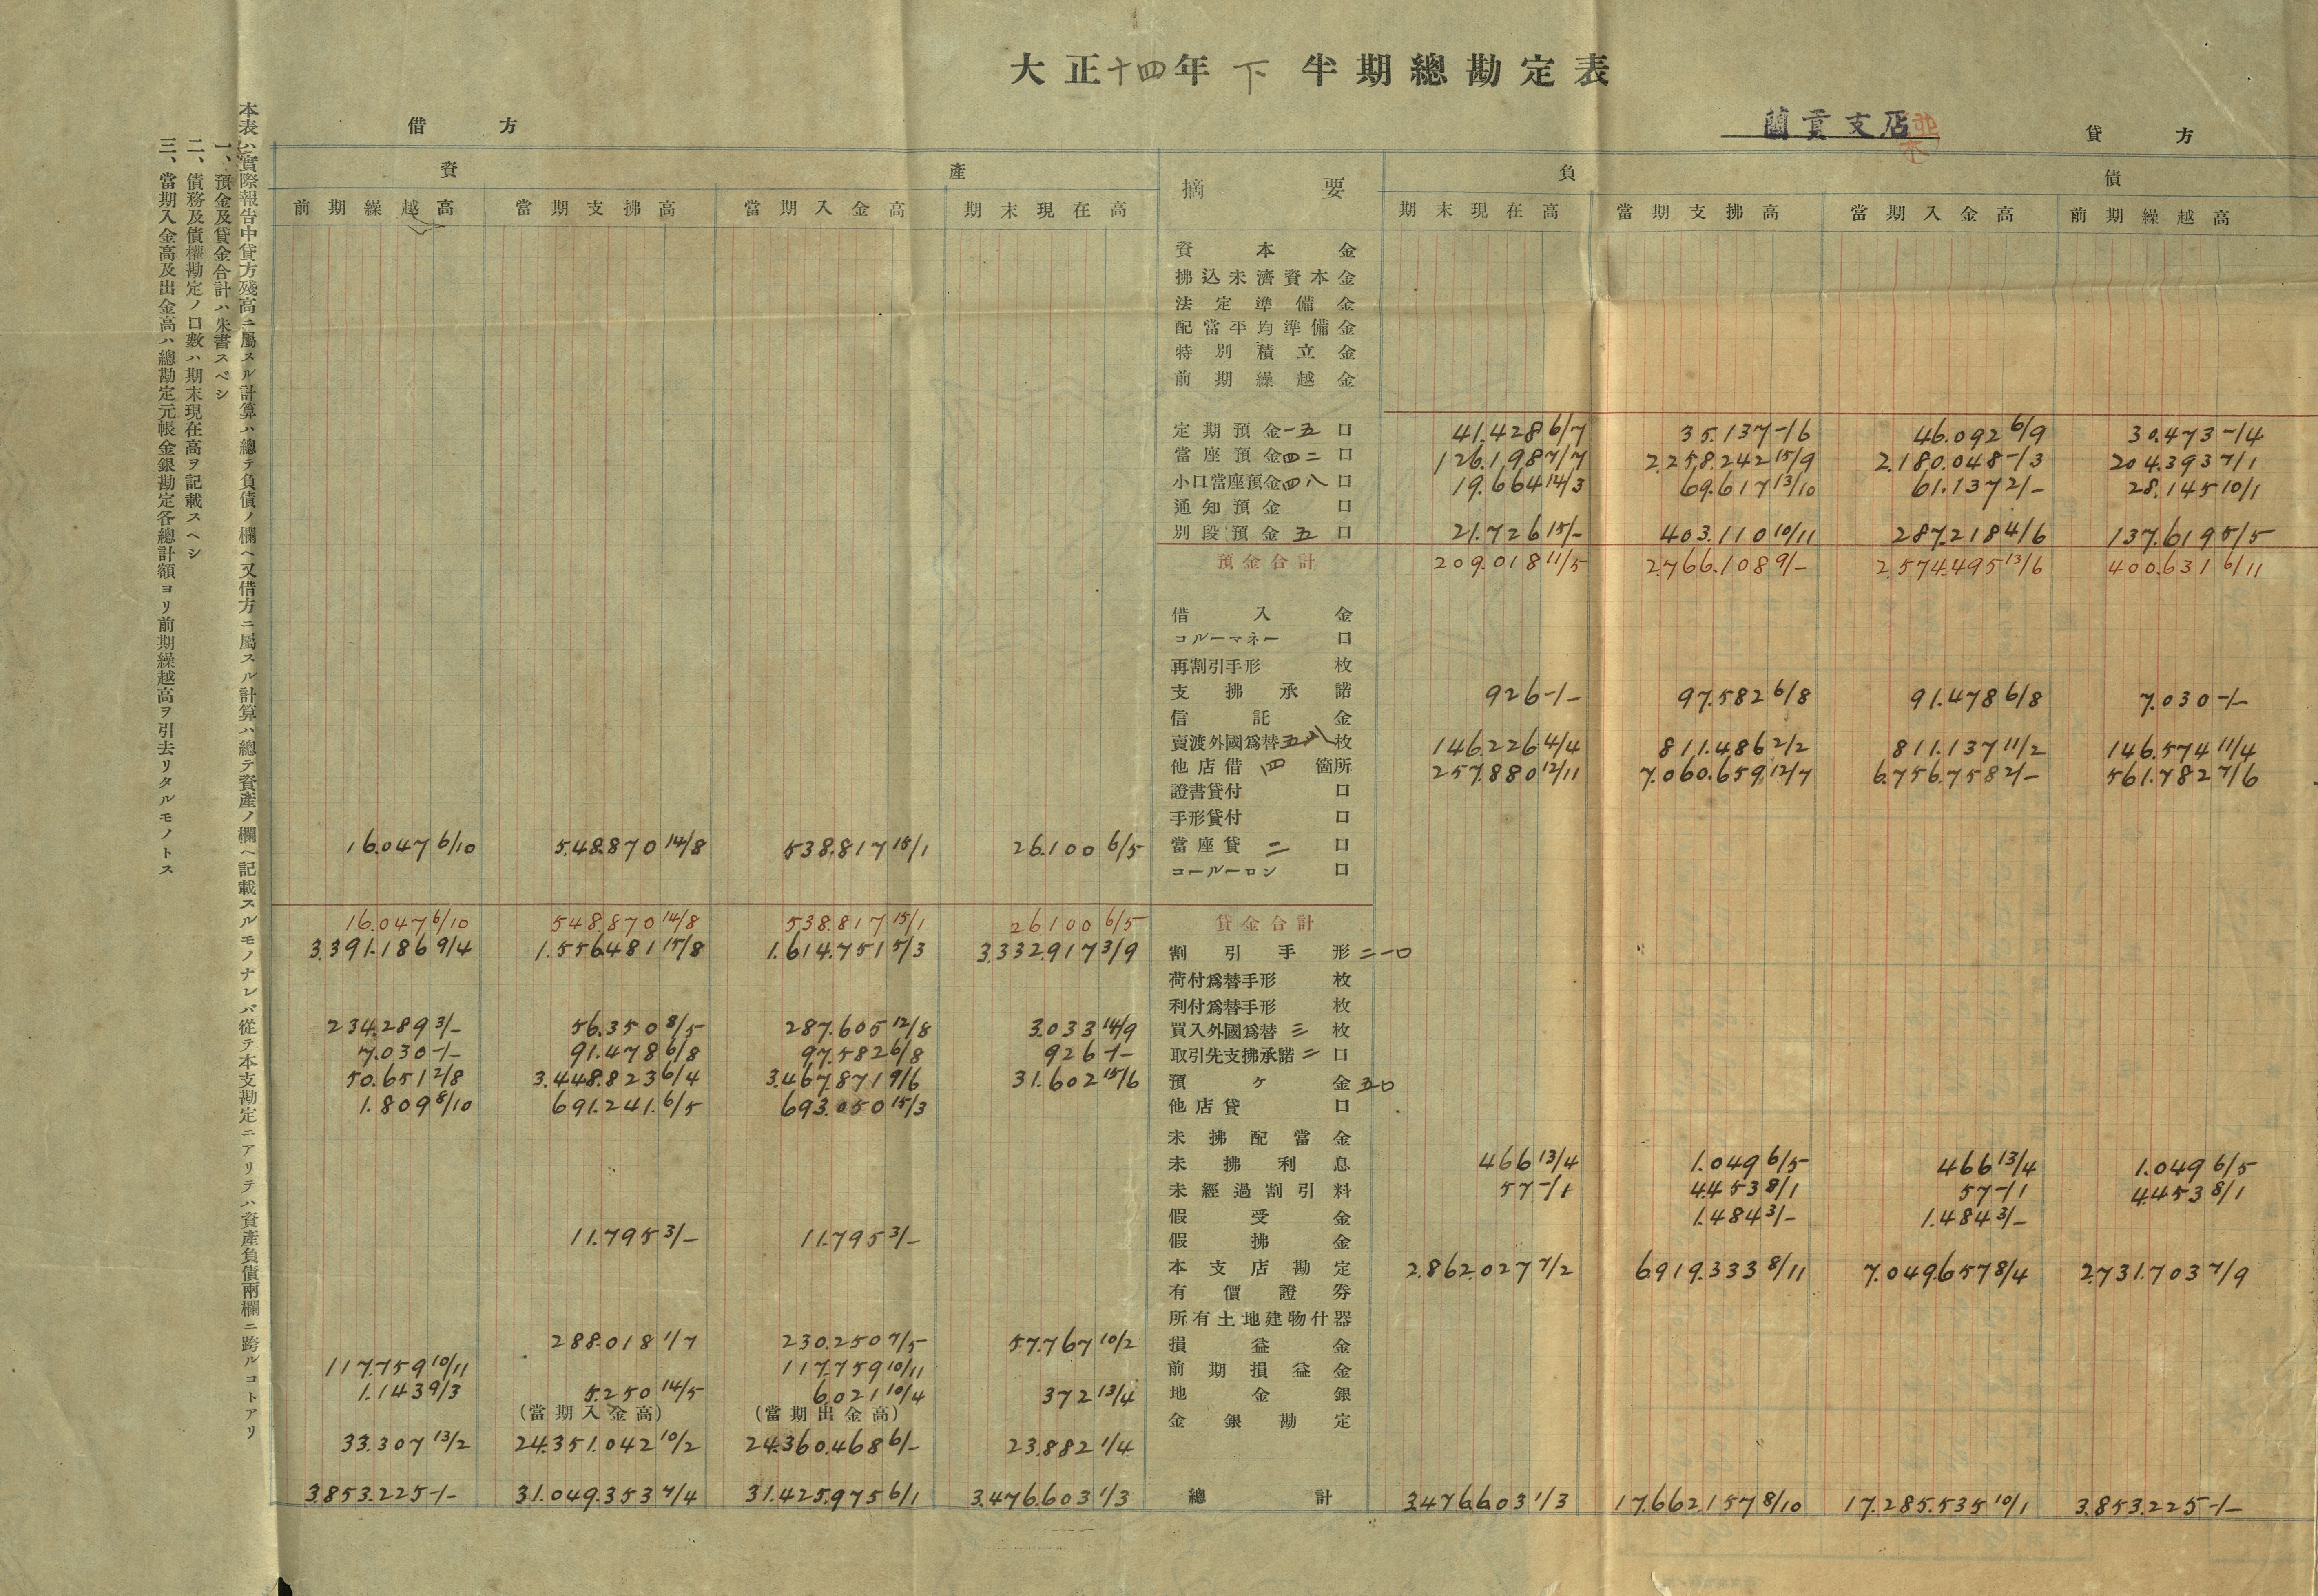 大正十四年下半期總勘定表
蘭貢支店
借方
貸方
資產
摘要
負債
前期繰越高 當期支拂高 當期入金高 期末現在高 期末現在高 當期支拂高 當期入金高 前期繰越高
資本金
拂込未濟資本金
法定準備金
配當平均準備金
特別積立金
前期繰越金
定期預金一五口 41.428 6/7 35.137 -/6 46.092 6/9 30.473 -/4
當座預金四二口 126.198 7/7 2.258.242 15/9 2.180.048 -/3 204.393 7/1
小口當座預金四八口 19.664 14/3 69.617 13/10 61.137 2/- 28.145 10/1
通知預金口
別段預金五口 21.726 15/- 403.110 10/11 287.218 4/6 137.619 5/5
預金合計 209.018 11/5 2.766.108 9/- 2.574.495 13/6 400.631 6/11
借入金
コルーマネー口
再割引手形枚
支拂承諾 926 -/- 97.582 6/8 91.478 6/8 7.030 -/-
信託金
賣渡外國爲替五八枚 146.226 4/4 811.486 2/2 811.137 11/2 146.574 11/4
他店借四箇所 257.880 12/11 7.060.659 12/7 6.756.758 2/- 561.782 7/6
證書貸付口
手形貸付口
16.047 6/10 548.870 14/8 538.817 15/1 26.100 6/5 當座貸二口
コールーロン口
16.047 6/10 548.870 14/8 538.817 15/1 26.100 6/5 貸金合計
3.391.186 9/4 1.556.481 15/8 1.614.751 5/3 3.332.917 3/9 割引手形二一口
荷付爲替手形枚
利付爲替手形枚
234.289 3/- 56.350 8/5 287.605 12/8 3.033 14/9 買入外國爲替三枚
7.030 -/- 91.478 6/8 97.582 6/8 926 -/- 取引先支拂承諾二口
50.651 2/8 3.448.823 6/4 3.467.871 9/6 31.602 15/6 預ケ金五口
1.809 8/10 691.241. 6/5 693.050 15/3 他店貸口
未拂配當金
未拂利息 466 13/4 1.049 6/5 466 13/4 1.049 6/5
未經過割引料 57 -/1 4.453 8/1 57 -/1 4.453 8/1
假受金 1.484 3/- 1.484 3/-
11.795 3/- 11.795 3/- 假拂金
本支店勘定 2.862.027 7/2 6.919.333 8/11 7.049.657 8/4 2.731.703 7/9
有價證券
所有土地建物什器
288.018 1/7 230.250 7/5 57.767 10/2 損益金
117.759 10/11 117.759 10/11 前期損益金
1.143 9/3 5.250 14/5 6.021 10/4 372 13/4 地金銀
(當期入金高) (當期出金高) 金銀勘定
33.307 13/2 24.351.042 10/2 24.360.468 6/- 23.882 1/4
3.853.225 -/- 31.049.353 7/4 31.425.975 6/1 3.476.603 1/3 總計 3.476.603 1/3 17.662.157 8/10 17.285.535 10/1 3.853.225 -/-
本表ハ實際報告中貸方殘高ニ屬スル計算ハ總テ負債ノ欄ヘ又借方ニ屬スル計算ハ總テ資產ノ欄ヘ記載スルモノナレバ從テ本支勘定ニアリテハ資產負債兩欄ニ跨ルコトアリ
一、預金及貸金合計ハ朱書スベシ
二、債務及債權勘定ノ口數ハ期末現在高ヲ記載スヘシ
三、當期入金高及出金高ハ總勘定元帳金銀勘定各總計額ヨリ前期繰越高ヲ引去リタルモノトス